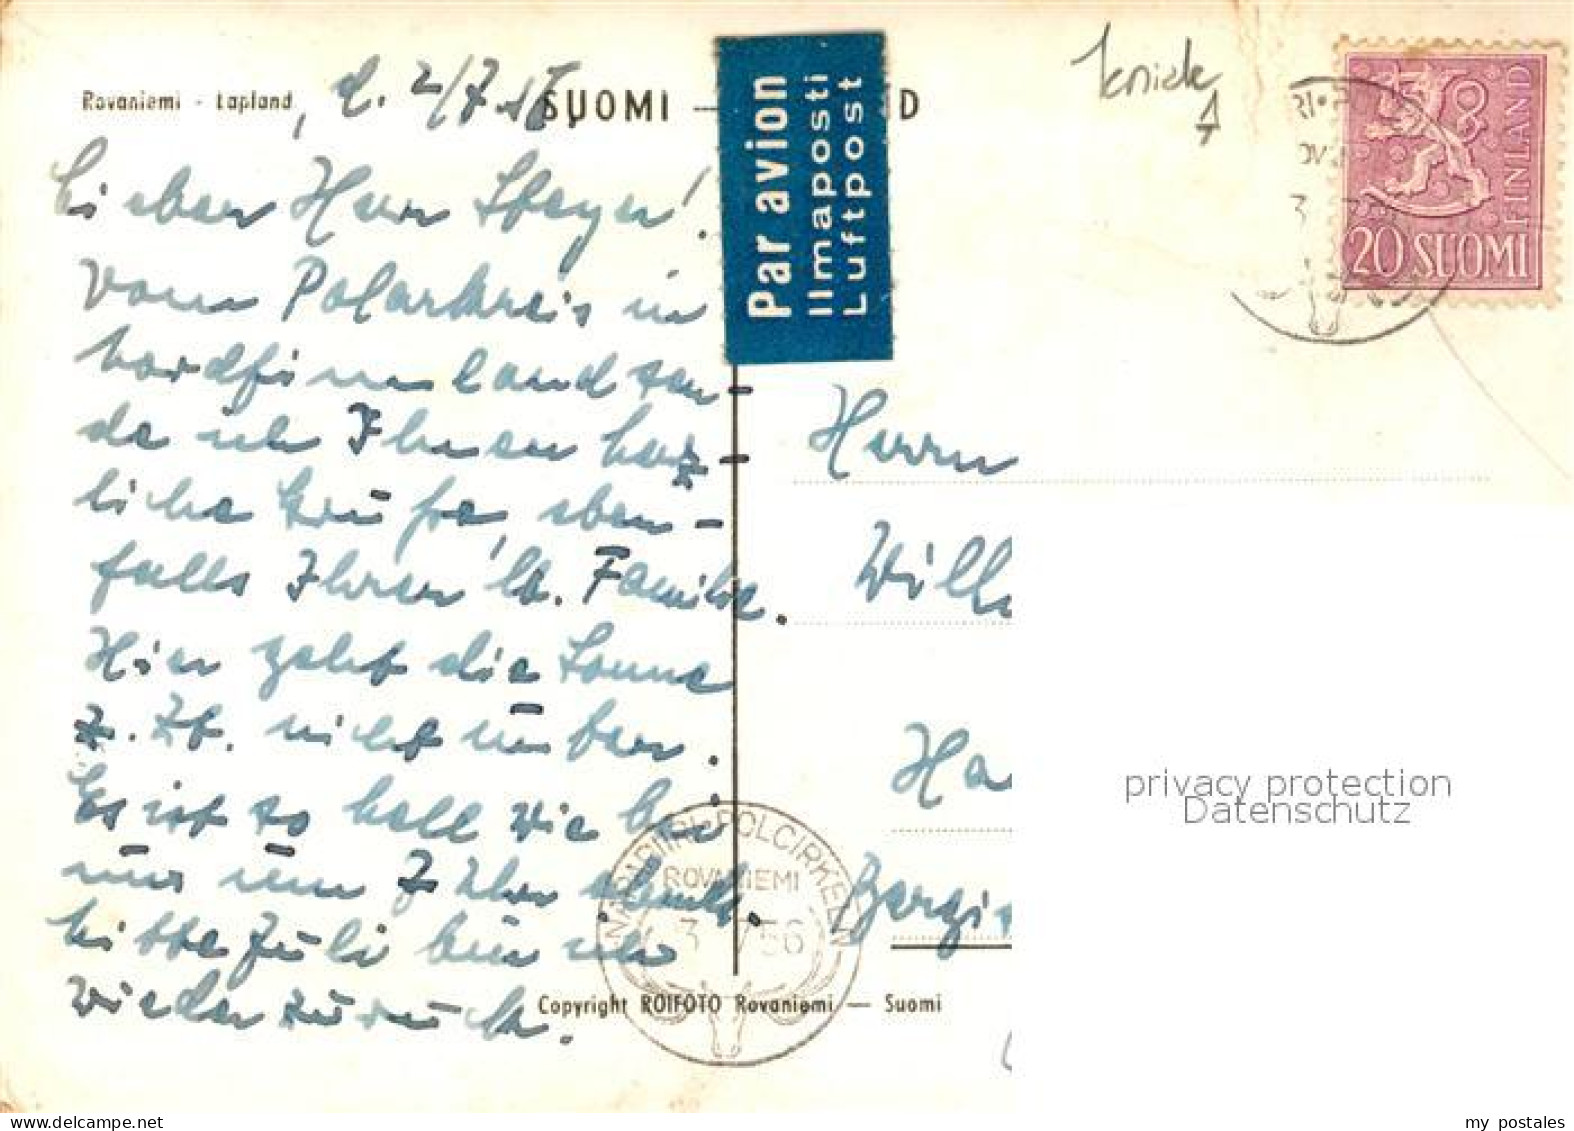 Rovaniemi - Lapland, d. 2/7.
SUOMI —
D
Par avion
Ilmaposti
Luftpost
FINLAND
20 SUOMI
Lieber Herr Steyer!
Vom Polarkreis in
Nordfinnland sen-
de ich Ihnen herz-
liche Grüße, eben-
falls Ihrer lb. Familie.
Hier geht die Sonne
z. Zt. nicht unter.
Es ist so hell wie bei
uns um 7 Uhr abends.
Mitte Juli bin ich
wieder zurück.
Herrn
Wilh
Ha
NAPAPIIRI-POLCIRKELN
ROVANIEMI
3 7 56
Copyright ROIFOTO Rovaniemi — Suomi
privacy protection
Datenschutz
my postales